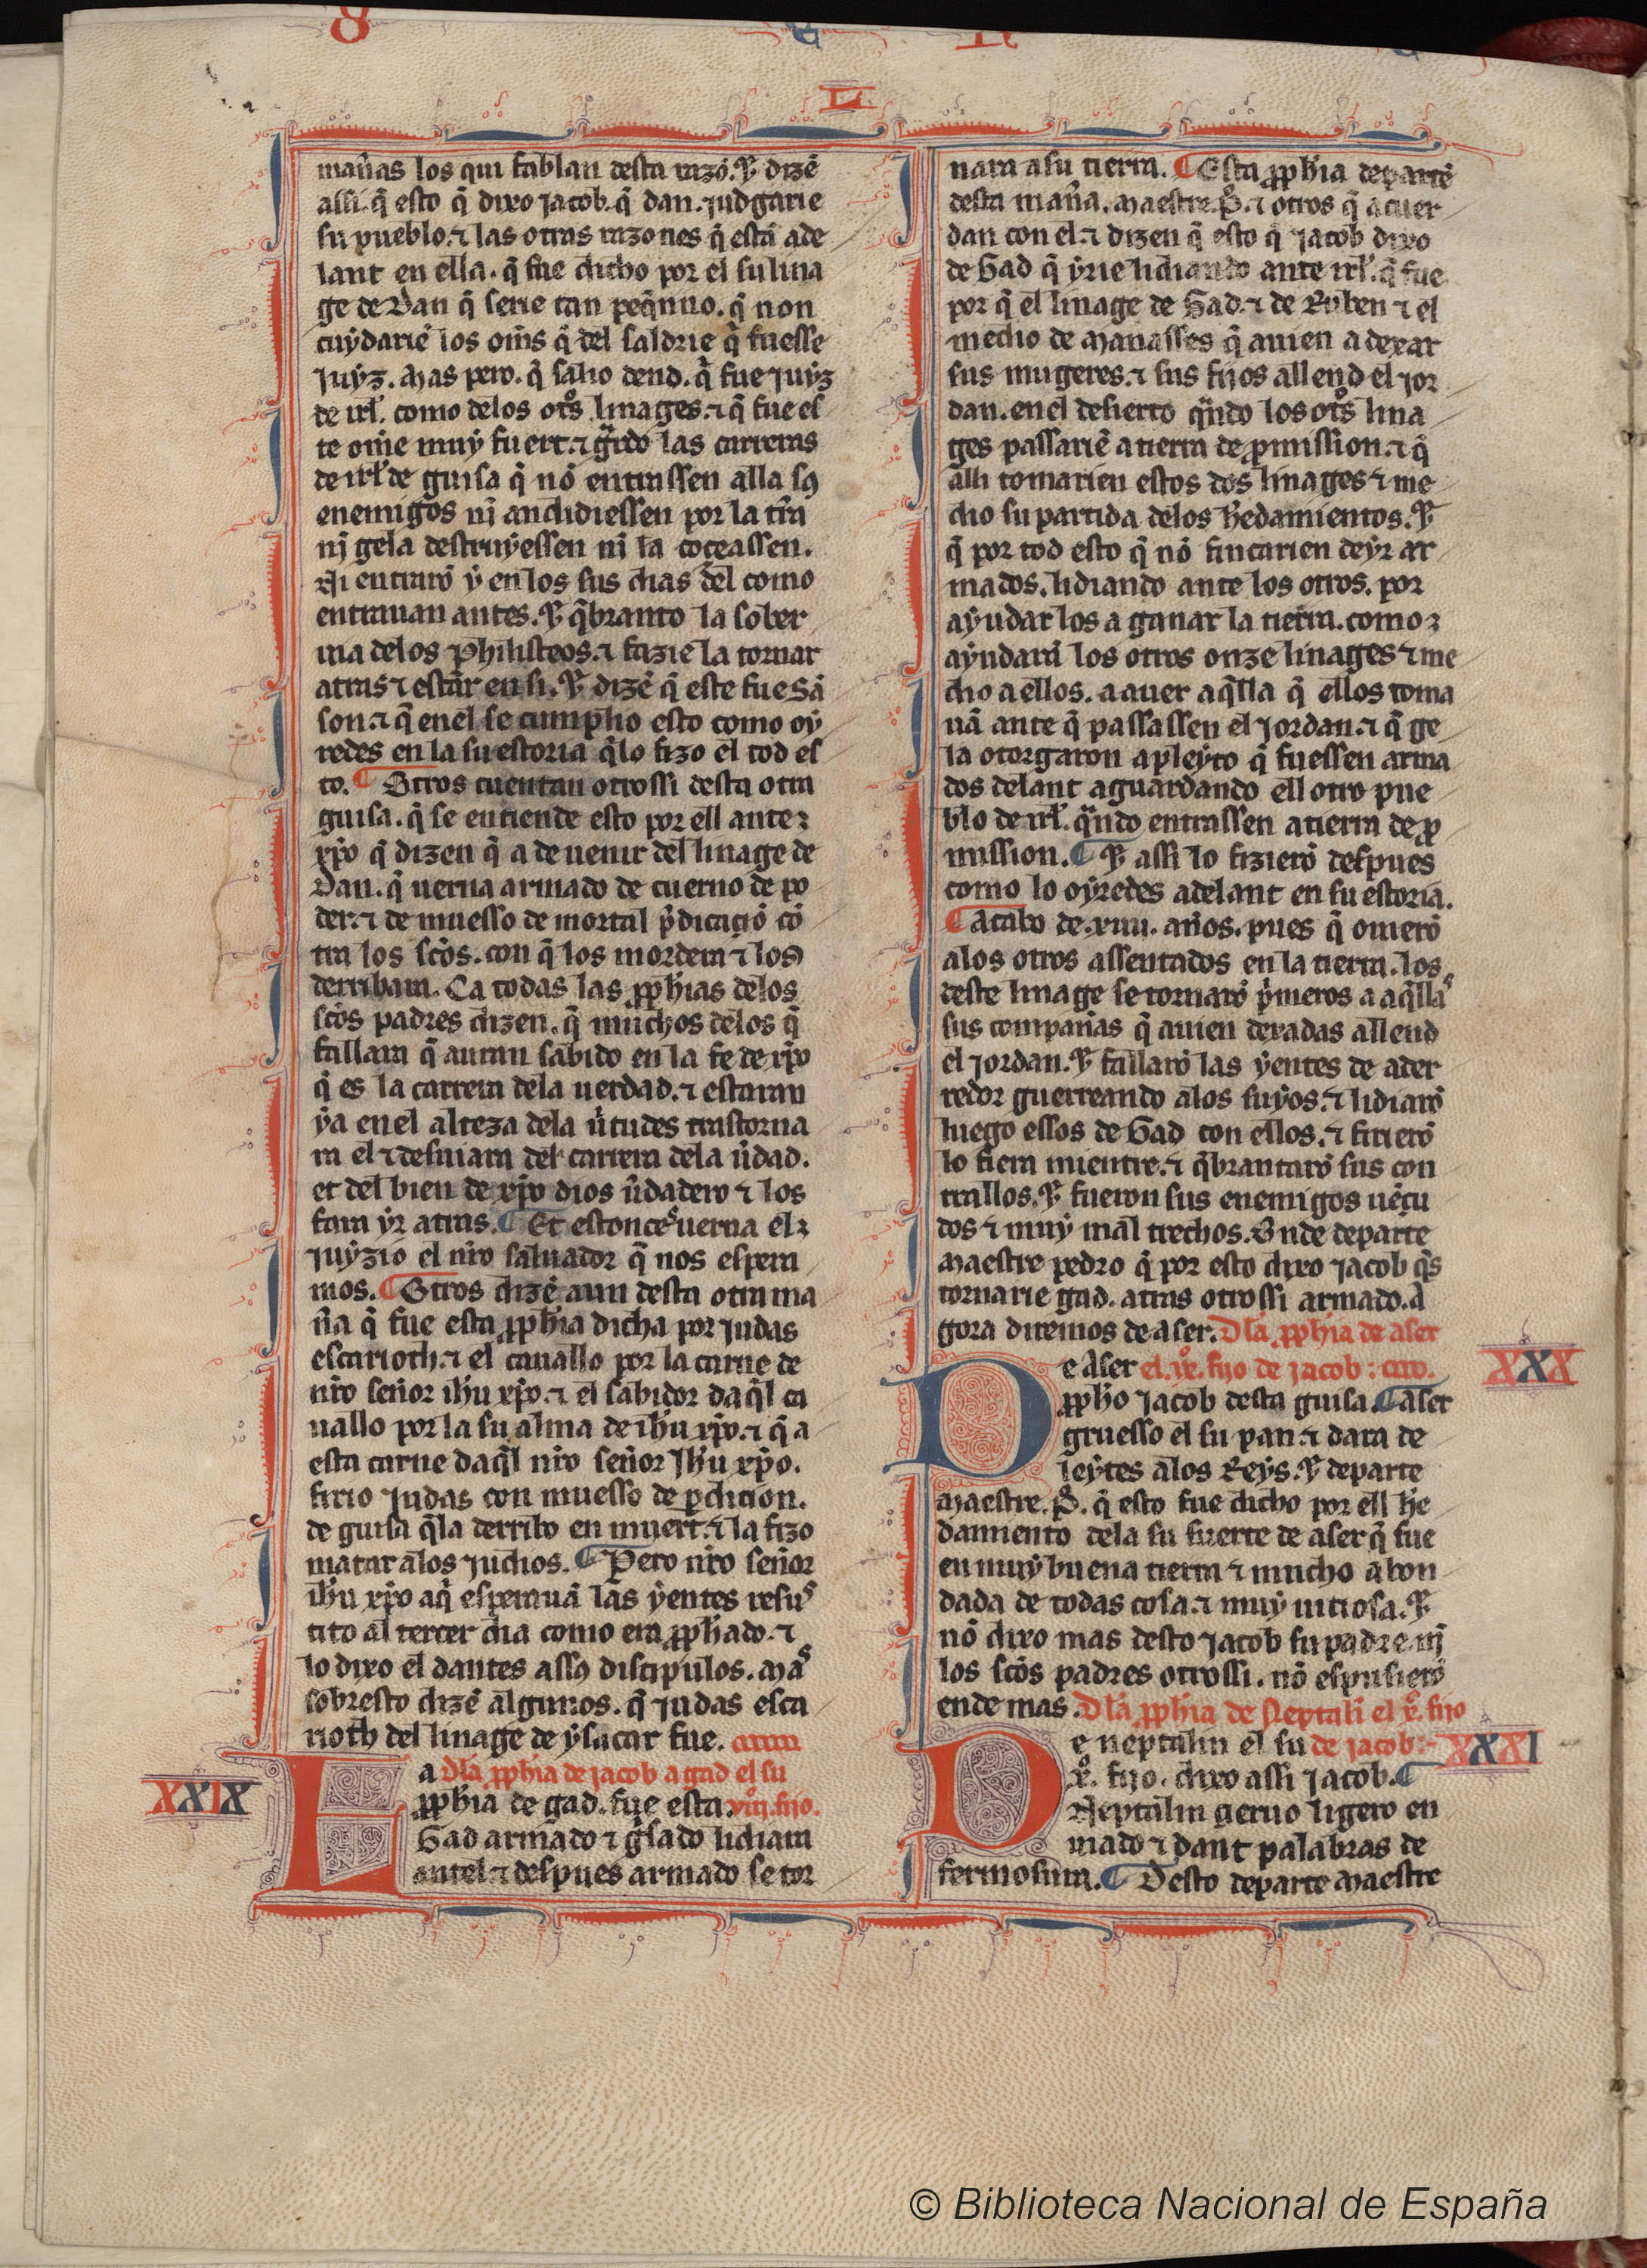 L
mañas los qui fablan desta razõ. ⁊ dizẽ
assi. q̃ esto q̃ dixo jacob. q̃ dan. judgarie
su pueblo. ⁊ las otras razones q̃ estã ade
lant en ella. q̃ fue dicho por el su lina
ge de Dan q̃ serie tan peq̃nno. q̃ non
cuydariẽ los om̃s q̃ del saldrie q̃ fuesse
juyz. Mas pero. q̃ salio dend. q̃ fue juyz
de irl̃. como delos otºs linages. ⁊ q̃ fue es
te om̃e muy fuert. ⁊ gºrdo las carreras
de irl̃ de guisa q̃ nõ entrassen alla sꝯ
enemigos nj̃ andidiessen por la tr̃ra
nj̃ gela destruyessen nj̃ la coçeassen.
Ni entrarõ y en los sus dias del como
entrauan antes. ⁊ q̃branto la sober
uia delos philisteos. ⁊ fazie la tornar
atras ⁊ estar en si. ⁊ dizẽ q̃ este fue sã
son. ⁊ q̃ enel se cumplio esto como oy
redes en la su estoria q̃lo fizo el tod es
to. ¶ Otros cuentan otrossi desta otra
guisa. q̃ se entiende esto por ell ante
xp̃o q̃ dizen q̃ a de uenir del linage de
Dan. q̃ uerna armado de cuerno de po
der. ⁊ de muesso de mortal p̃dicaciõ cõ
tra los sc̃os. con q̃ los mordera ⁊ los
derribara. Ca todas las ꝓph̃ias delos
sc̃os padres dizen. q̃ muchos delos q̃
fallara q̃ auran sabido en la fe de xp̃o
q̃ es la carrera dela uerdad. ⁊ estaran
ya enel alteza dela ũtudes trastorna
ra el ⁊ desuiara del carrera dela ũdad.
et del bien de xp̃o dios ũdadero ⁊ los
fara yr atras. ¶ Et estonces uerna el
juyzio el nr̃o saluador q̃ nos espera
mos. ¶ Otros dizẽ aun desta otra ma
ña q̃ fue esta ꝓph̃ia dicha por judas
escarioth. ⁊ el cauallo por la carne de
nr̃o señor ih̃u xp̃o. ⁊ el sabidor daq̃l ca
uallo por la su alma de ih̃u xp̃o. ⁊ q̃ a
esta carne daq̃l nr̃o señor Jh̃u xp̃o.
firio judas con muesso de ꝑdicion.
de guisa q̃la derribo en muert. ⁊ la fizo
matar alos judios. ¶ Pero nr̃o señor
ih̃u xp̃o aq̃ esperauã las yentes resus
cito al tercer dia como era ꝓph̃ado. ⁊
lo dixo el dantes assꝯ discipulos. Mas
sobresto dizẽ algunos. q̃ judas esca
rioth del linage de ysacar fue.
XXIX
La Dla ꝓph̃ia de jacob a gad el su
ꝓph̃ia de gad. fue esta. viijº. fijo.
Gad armado ⁊ gºsado lidiara
antel. ⁊ despues armado se tor
nara a su tierra. ¶ Esta ꝓph̃ia departẽ
desta mañra. maestre. P̃. ⁊ otros q̃ acuer
dan con el. ⁊ dizen q̃ esto q̃ jacob dixo
de Gad q̃ yrie lidiando ante irl̃. q̃ fue
por q̃ el linage de Gad. ⁊ de Ruben ⁊ el
medio de Manasses q̃ auien a dexar
sus mugeres. ⁊ sus fijos allend el jor
dan. en el desierto qºndo los otºs lina
ges passariẽ a tierra de ꝓmission. ⁊ q̃
alli tomarien estos dos linages ⁊ me
dio su partida delos h̃edamientos. ⁊
q̃ por tod esto q̃ nõ fincarien deyr ar
mados. lidiando ante los otros. por
ayudar los a ganar la tierra. como
ayudarã los otros onze linages ⁊ me
dio a ellos. a auer aq̃lla q̃ ellos toma
uã ante q̃ passassen el jordan. ⁊ q̃ ge
la otorgaron a pleyto q̃ fuessen arma
dos delant aguardando ell otro pue
blo de irl̃. qºndo entrassen a tierra de ꝓ
mission. ¶ ⁊ assi lo fizierõ despues
como lo oyredes adelant en su estoria.
¶ acabo de .xiiii. años. pues q̃ ouierõ
alos otros assentados en la tierra. los
deste linage se tornarõ p̃meros a aq̃llas
sus compañas q̃ auien dexadas allend
el jordan. ⁊ fallarõ las yentes de ader
redor guerreando alos suyos. ⁊ lidiarõ
luego essos de Gad con ellos. ⁊ firierõ
lo fiera mientre. ⁊ q̃brantarõ sus con
trallos. ⁊ fueron sus enemigos uẽçu
dos ⁊ muy mal trechos. Onde departe
maestre pedro q̃ por esto dixo jacob q̃s
tornarie gad. atras otrossi armado. A
gora diremos de aser. Dla ꝓph̃ia de aser
XXX
De Aser el .ixº. fijo de jacob:
ꝓph̃o jacob desta guisa. ¶ aser
gruesso el su pan. ⁊ dara de
leytes alos Reys. ⁊ departe
Maestre. P̃. q̃ esto fue dicho por ell h̃e
damiento dela su suerte de aser q̃ fue
en muy buena tierra ⁊ mucho abon
dada de todas cosa. ⁊ muy uiciosa. ⁊
nõ dixo mas desto jacob su padre. nj̃
los sc̃os padres otrossi. nõ espusierõ
ende mas. Dla ꝓph̃ia de Neptali el xº. fijo
XXXI
De neptalin el su de jacob:
xº. fijo. dixo assi jacob. ¶
Neptalin çieruo ligero en
uiado ⁊ dant palabras de
fermosura. ¶ Desto departe maestre
© Biblioteca Nacional de España